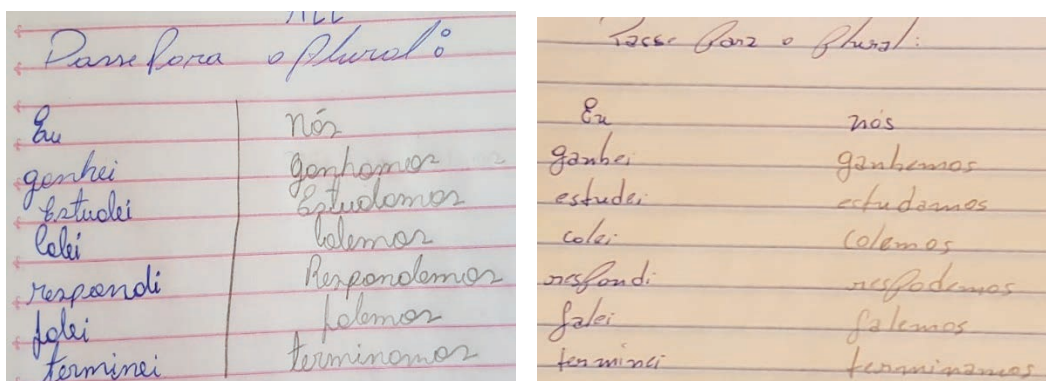 Passe Para o plural:
Eu nós
ganhei ganhamos
Estudei Estudamos
Colei Colemos
respondi Respondemos
falei falemos
terminei terminamos
Passe Para o plural:
Eu nós
ganhei ganhemos
estudei estudamos
colei colemos
respondi respodemos
falei falemos
terminei terminamos